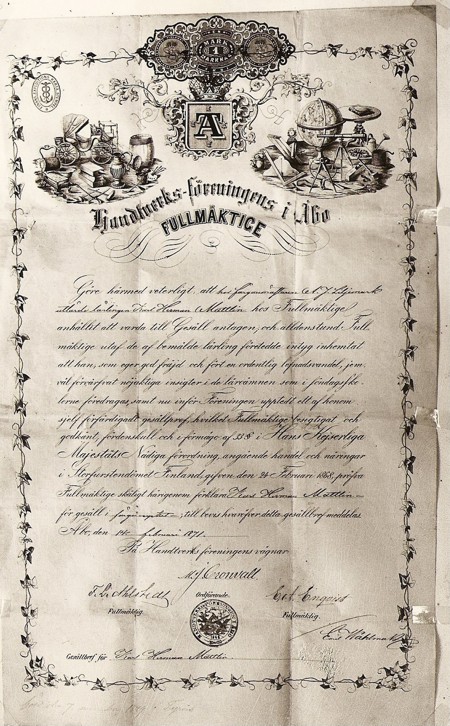 MARK
1
MARKKA
A
Handtverks-föreningens i Åbo
FULLMÄKTIGE
Göre härmed veterligt, att hos färgaremästaren C. J. Liljemark
utlärde lärlingen Karl Herman Mattlin hos Fullmäktige
anhållit att varda till Gesäll antagen; och alldenstund Full-
mäktige utaf de af bemälde lärling företedde intyg inhemtat
att han, som eger god fräjd och fört en ordentlig lefnadsvandel, jem-
väl förvärfvat nöjaktiga insigter i de läroämnen som i söndagssko-
lorne föredragas, samt nu inför Föreningen upptett ett af honom
sjelf förfärdigadt gesällprof, hvilket Fullmäktige besigtigat och
godkänt, fördenskull och i förmågo af 33 § i Hans Kejserliga
Majestäts Nådiga förordning, angående handel och näringar
i Storfurstendömet Finland, gifven den 24 Februari 1868, pröfva
Fullmäktige skäligt härigenom förklara Karl Herman Mattlin
för gesäll i färgareyrket; till bevis hvaröfver detta gesällbref meddelas.
Åbo, den 14 februari 1871.
På Handtverksföreningens vägnar
Cronvall.
Ordförande.
C. A. Enqvist
Fullmäktig.
Fullmäktig.
Gesällbref för Karl Herman Mattlin